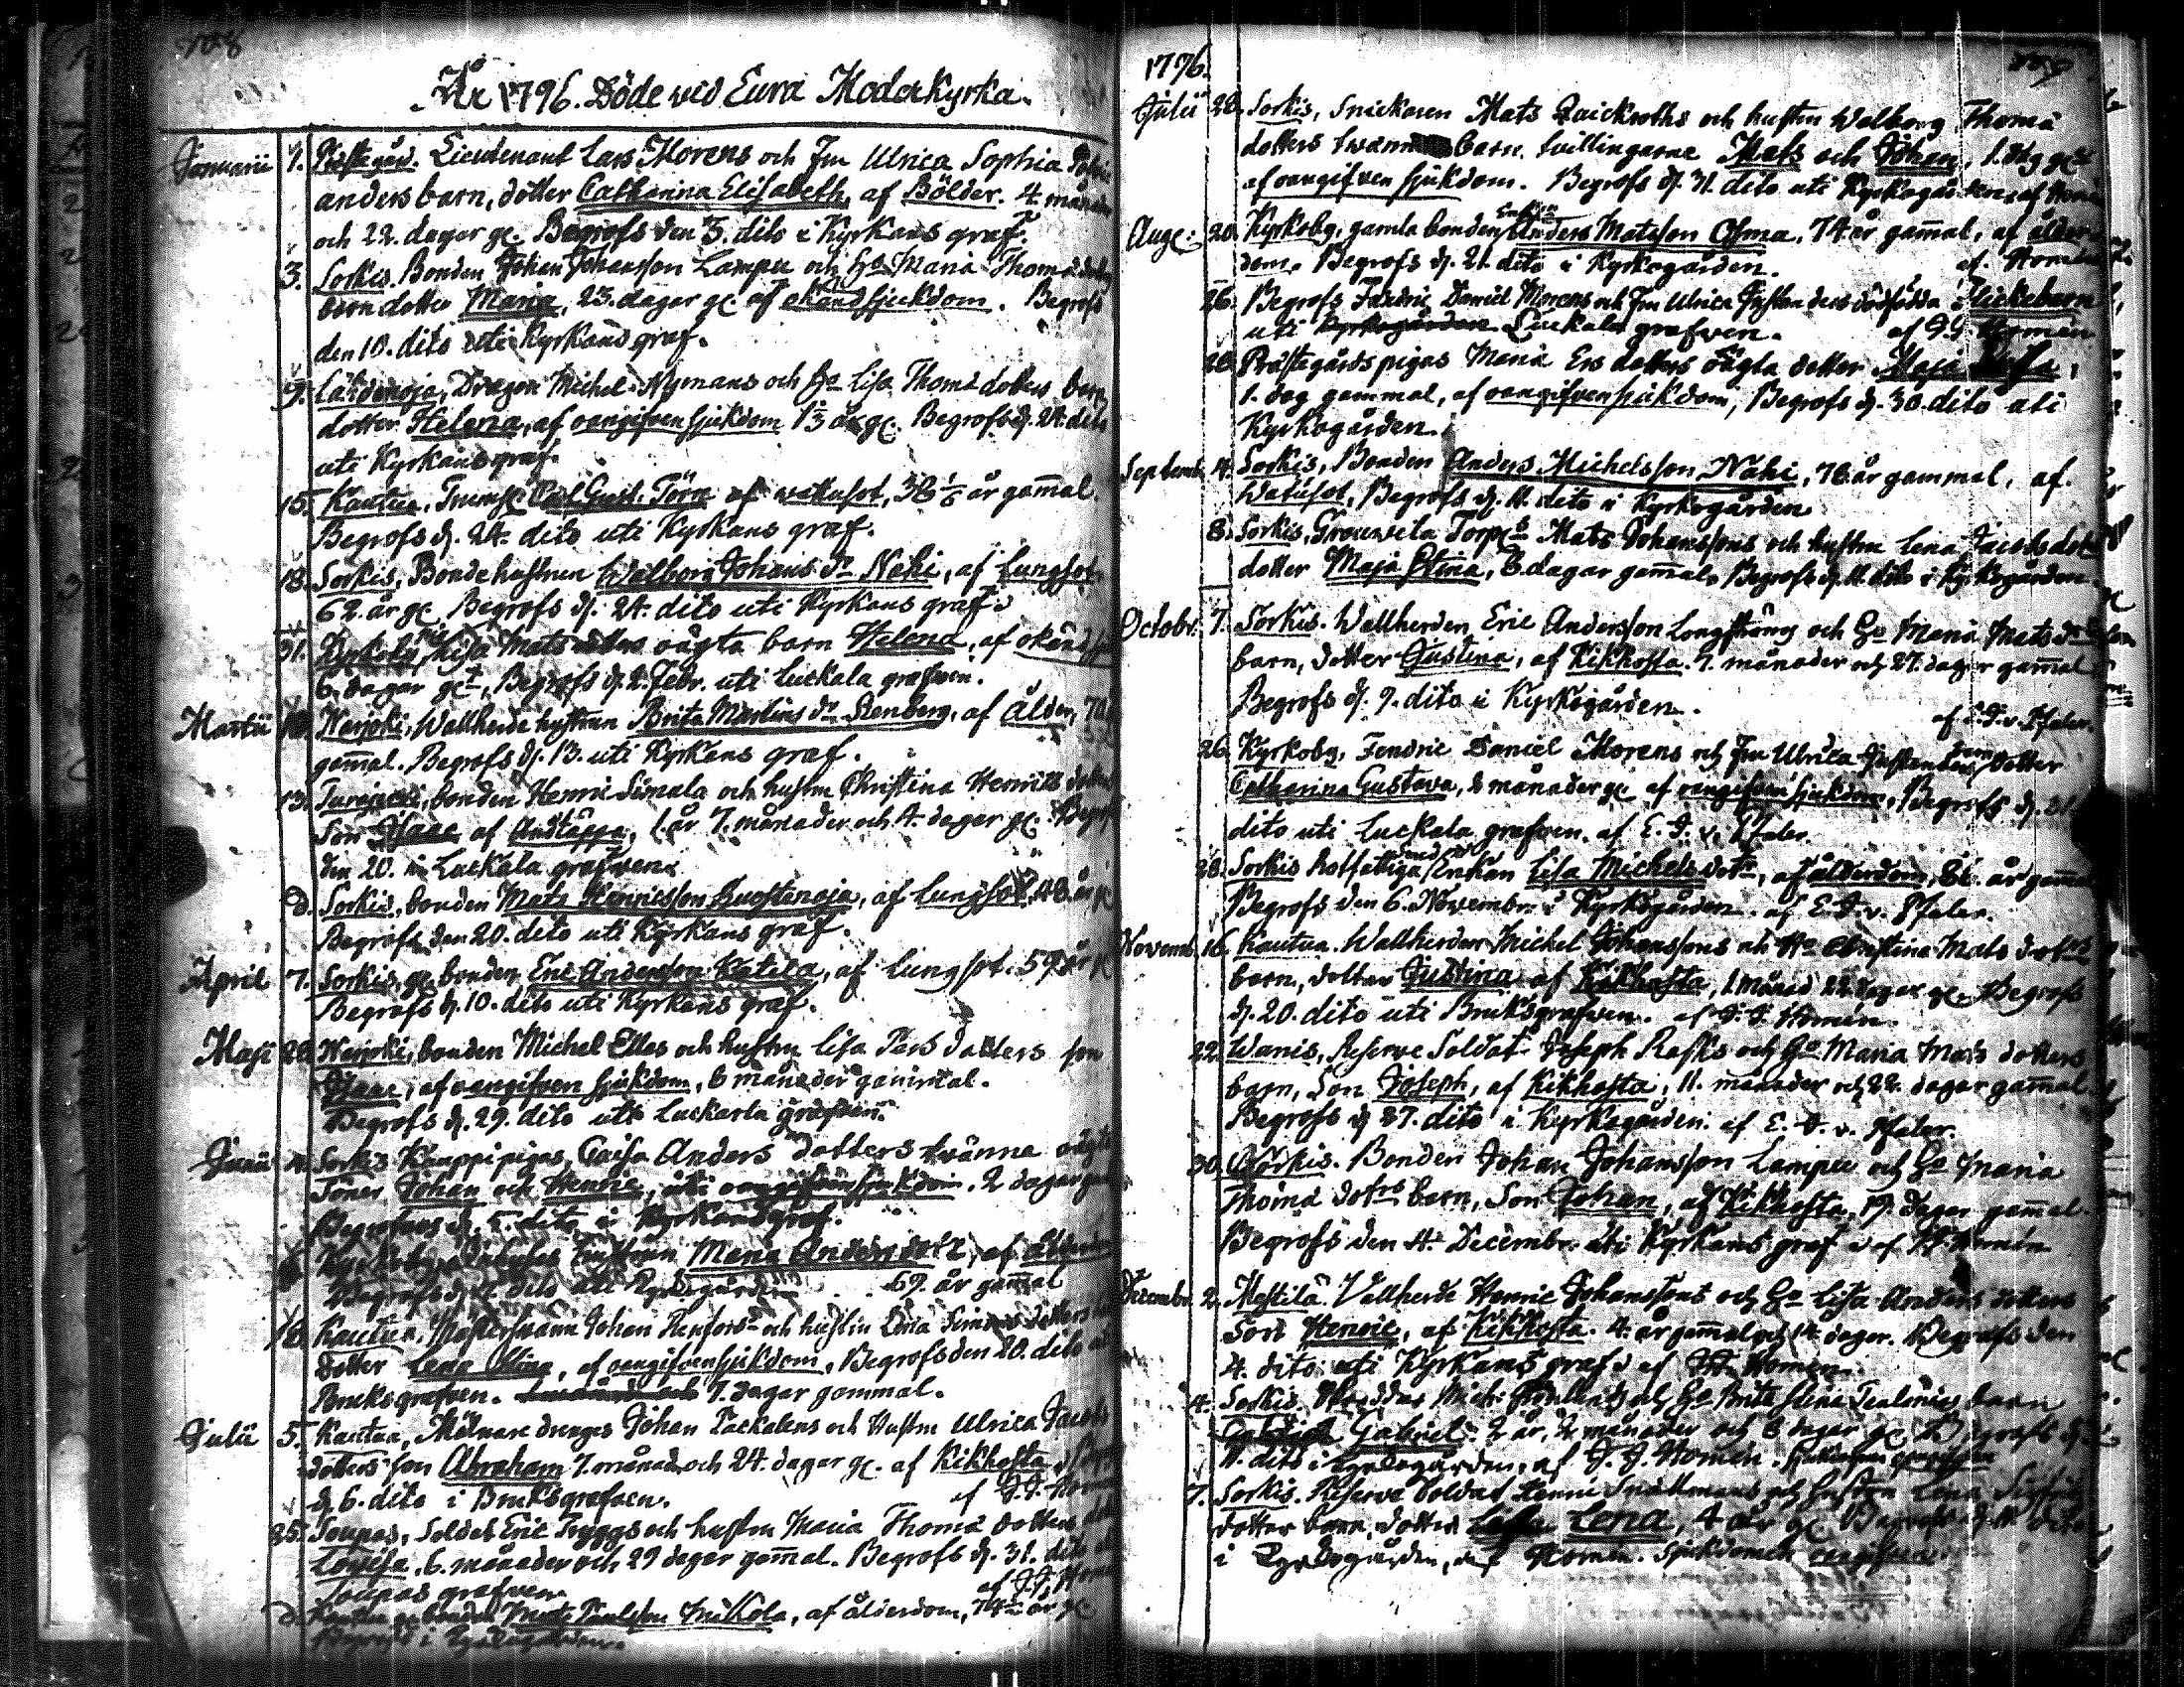 108
År 1796. Döde vid Eura Moderkyrka.
Januarii 1. Prästegård. Lieutenant Lars Morens och Fru Ulrica Sophia
anders barn, dotter Catharina Elisabeth, af Bölder. 4. månader
och 22. dagar gl. Begrofs den 5. dito i Kyrkans graf.
3. Sorkis. Bonden Johan Johansson Lampu och Ho Maria Thomä dotters
barn dotter Maria, 23. dagar gl. af okänd sjukdom. Begrofs
den 10. dito uti Kyrkans graf.
9. Dragon Michel Nymans och Ho Lisa Thomä dotters barn
dotter Helena, af oangifven sjukdom 1 2/3 år gl. Begrofs d. 24. dito
uti Kyrkans graf.
15. Kautua, Carl Gust. Törn af vattusot, 38 1/6 år gam̄al.
Begrofs d. 24. dito uti Kyrkans graf.
18. Sorkis, Bondehustrun Walborg Johans dr Nahi, af Lungsot,
62. år gl. Begrofs d. 24. dito uti Kyrkans graf.
31. Kyrkoby, Lisa Mats dotters oägta barn Helena, af okänd
6. dagar gl, Begrofs d. 2. Febr. uti Luckala grafven.
Martii 10. Nerjoki, Wallherde hustrun Brita Martins dr Stenberg, af Ålder, 70
gam̄al. Begrofs d. 13. uti Kyrkans graf.
13. bonden Henric Simala och hustru Christina Henrics dotters
Son Isaac af Andtäppa, 1. år 7. månader och 4. dagar gl. Begrofs
den 20. i Luckala grafven.
d. Sorkis, bonden Mats Henricsson Ruostenoja, af Lungsot, 48. år gl
Begrofs den 20. dito uti Kyrkans graf.
April 7. Sorkis, gl. bonden Eric Andersson Katila, af lungsot. 59 år gl
Begrofs d. 10. dito uti Kyrkans graf.
Maji 20. Nerjoki, bonden Michel Ellas och hustru Lisa Pers dotters son
Isaac, af oangifven sjukdom, 8 månader gammal.
Begrofs d. 29. dito uti Luckarla grafven.
Junii 4. Sorkis Kauppi pigas Caisa Anders dotters tvänne oägta
söner Johan och Henric, uti oangifven sjukdom. 2 dagar
Begrofvos d. 5. dito i Kyrkans graf.
hustrun Maria Anders dotr, af ålderdom
Begrofs d. dito uti Kyrkogården 69. år gam̄al
16. Kautua, Mästersvänn Johan Renfors och hustru Lena Simons dotters
dotter Lena Stina, af oangifven sjukdom, Begrofs den 20. dito uti
Bruksgrafven. 7. dagar gammal.
Julii 5. Kautua, Mölnare drenges Johan Packalens och Hustru Ulrica Jacobs
dotters son Abraham 7. månader och 24. dagar gl. af Kikhosta
d. 6. dito i Bruksgrafven. af J. J. Homen
25. Soupas, Soldat Eric Tryggs och hustru Maria Thomä dotters
Lovisa, 6. månader och 29 dagar gam̄al. Begrofs d. 31. dito
Soupas grafven. af J. J. Homen
d. Kautua gl. bonden Mats Paulsson Mikkola, af ålderdom, 74 år gl
Begrofs i Kyrkogården.
1796.
Julii 28. Sorkis, Snickaren Mats Qvickroths och hustru Walborg Thomä
dotters tvänne barn, tvillingarne Mats och Johan, 1. dag gl
af oangifven sjukdom. Begrofs d. 31. dito uti Kyrkogården af Homen
Aug: 20. Kyrkoby, gamla bonden Enkl. Anders Matsson Osma, 74 år gam̄al, af ålder-
dom. Begrofs d. 21. dito i Kyrkogården. af Homen
26. Begrofs Fendric Daniel Morens och Fru Ulrica dess dödfödda Flickebarn
uti Kyrkogården Luckala grafven. af J. J. Homen
28. Prästegårds pigas Maria Ers dotters oägta dotter Maja Lisa,
1. dag gammal, af oangifven sjukdom, Begrofs d. 30. dito uti
Kyrkogården.
Septemb. 4. Sorkis, Bonden Anders Michelsson Nahi, 70. år gammal, af
Watusot, Begrofs d. 11. dito i Kyrkogården.
8. Sorkis, Torp Mats Johanssons och hustru Lena Jacobs dot
dotter Maja Stina, 8. dagar gam̄al. Begrofs d. 11. dito i Kyrkogården.
Octobr. 7. Sorkis. Wallherden Eric Andersson Longström och Ho Maria Mats dr
barn, dotter Justina, af Kikhosta. 7. månader och 27. dagar gam̄al
Begrofs d. 9. dito i Kyrkogården. af E. J. v. Pfaler.
26. Kyrkoby, Fendric Daniel Morens och Fru Ulrica dotter
Catharina Gustava, 2 månader gl. af oangifven sjukdom, Begrofs d. 31
dito uti Luckala grafven. af E. J. v. Pfaler.
28. Sorkis Rotfattiga Enkan Lisa Michels dotr, af ålderdom, 81. år gam̄al
Begrofs den 6. Novembr. i Kyrkogården. af E. J. v. Pfaler.
Novemb. 16. Kautua. Wallherden Michel Johanssons och Ho Christina Mats dotrs
barn, dotter Justina af Kikhosta, 1. månad 22 dagar gl. Begrofs
d. 20. dito uti Bruksgrafven. af J. J. Homén.
22. Wanis, Reserve Soldat Joseph Rasks och Ho Maria Mats dotters
barn, Son Joseph, af Kikhosta, 11. månader och 22. dagar gam̄al
Begrofs d. 27. dito i Kyrkogården. af E. J. v. Pfaler.
30. Sorkis. Bonden Johan Johansson Lampu och Ho Maria
Thomä dotrs barn, Son Johan, af Kikhosta, 19. dagar gam̄al.
Begrofs den 4. Decembr. uti Kyrkans graf af Homén
Decembr. 2. Mestilä. Vallherde Henric Johanssons och Ho Lisa Anders dotters
Son Henric, af Kikhosta. 4. år gam̄al och 14. dagar. Begrofs den
4. dito uti Kyrkans graf af Homén.
4. Sorkis. och Ho Brita Stina barn
Gabriel. 2 år, 2 månader och 8 dagar gl. Begrofs d.
11. dito i Kyrkogården, af J. J. Homén.
7. Sorkis. Reserve Soldat Henric Snällmans och hustru Lena
dotter barn, dotter Lena, 4 år gl. Begrofs d. 11. dito
i Kyrkogården, af Homén. Sjukdomen oangifven